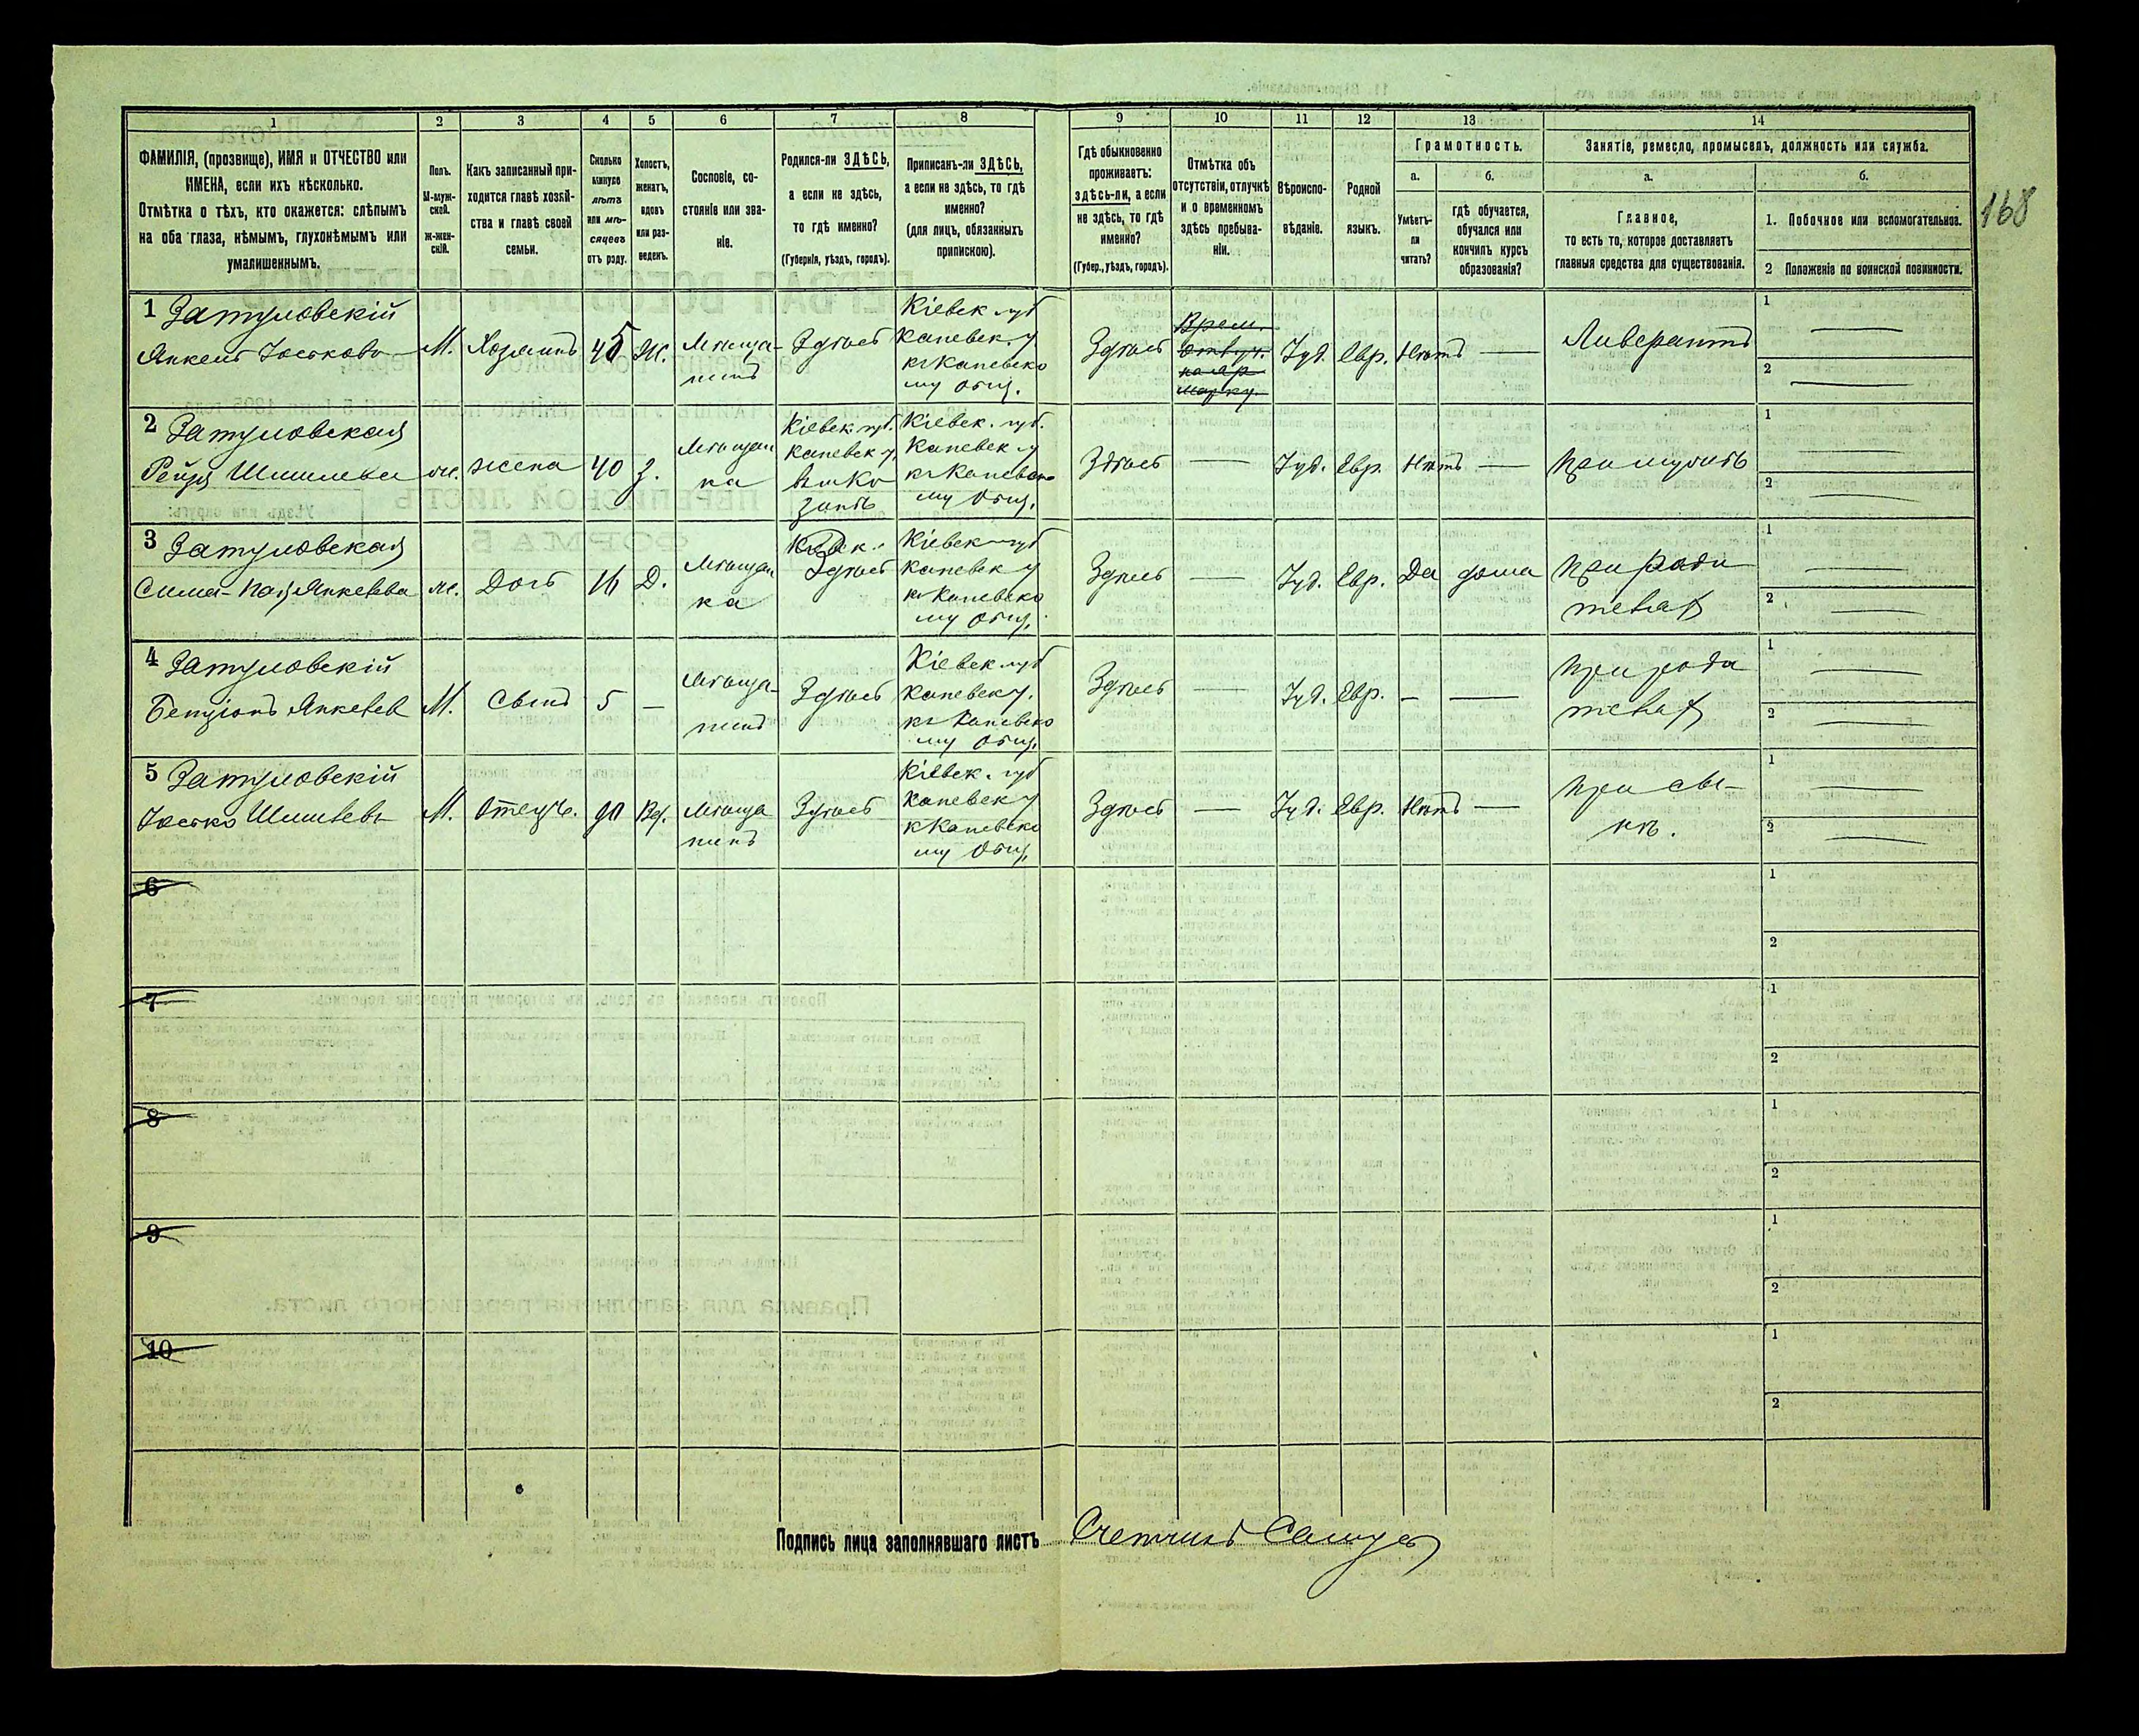 168
1 2 3 4 5 6 7 8 9 10 11 12 13 14
ФАМИЛІЯ, (прозвище), ИМЯ и ОТЧЕСТВО или
ИМЕНА, если ихъ нѣсколько.
Отмѣтка о тѣхъ, кто окажется: слѣпымъ
на оба глаза, нѣмымъ, глухонѣмымъ или
умалишеннымъ.
Полъ.
М-муж-
ской.
Ж-жен-
скій.
Какъ записанный при-
ходится главѣ хозяй-
ства и главѣ своей
семьи.
Сколько
минуло
лѣтъ
или мѣ-
сяцевъ
отъ роду.
Холостъ,
женатъ,
вдовъ
или раз-
веденъ.
Сословіе, со-
стояніе или зва-
ніе.
Родился-ли ЗДѢСЬ,
а если не здѣсь,
то гдѣ именно?
(Губернія, уѣздъ, городъ).
Приписанъ-ли ЗДѢСЬ,
а если не здѣсь, то гдѣ
именно?
(для лицъ, обязанныхъ
припискою).
Гдѣ обыкновенно
проживаетъ:
здѣсь-ли, а если
не здѣсь, то гдѣ
именно?
(Губер., уѣздъ, городъ).
Отмѣтка объ
отсутствіи, отлучкѣ
и о временномъ
здѣсь пребыва-
ніи.
Вѣроиспо-
вѣданіе.
Родной
языкъ.
Грамотность.
а.
Умѣетъ-
ли
читать?
б.
гдѣ обучается,
обучался или
кончилъ курсъ
образованія?
Занятіе, ремесло, промыселъ, должность или служба.
а.
Главное,
то есть то, которое доставляетъ
главныя средства для существованія.
б.
1. Побочное или вспомогательное.
2 Положеніе по воинской повинности.
1 Затуловскій
Янкель Іоськовъ
М.
Хозяинъ
45
Ж.
Мѣща-
нинъ
Здѣсь
Кіевск. губ
Каневск. у
къ Каневско
му Общ.
Здѣсь
Врем.
отлуч.
на яр
марку.
Іуд.
Евр.
Нѣтъ
Ливерантъ
1
2
2 Затуловская
Рейзя
ж.
жена
40
З.
Мѣщан
ка
Кіевск губ.
Каневск у.
Кіевск. губ.
Каневск у
къ Каневско
му Общ.
Здѣсь
Іуд.
Евр.
Нѣтъ
При мужѣ
1
2
3 Затуловская
Янкелева
ж.
Дочь
16
Д.
Мѣщан
ка
Здѣсь
Кіевск губ
Каневск у
къ Каневско
му Общ.
Здѣсь
Іуд.
Евр.
Да
дома
При роди
теляхъ
1
2
4 Затуловскій
Бенціонъ Янкелев
М.
Сынъ
5
Мѣща-
нинъ
Здѣсь
Кіевск губ
Каневск у.
къ Каневско
му Общ.
Здѣсь
Іуд.
Евр.
При роди
теляхъ
1
2
5 Затуловскій
Іосько
М.
Отецъ.
90
Вд.
Мѣща
нинъ
Здѣсь
Кіевск. губ
Каневск у
къ Каневско
му Общ.
Здѣсь
Іуд.
Евр.
Нѣтъ
При сы-
нѣ.
1
2
6
1
2
7
1
2
8
1
2
9
1
2
10
1
2
Подпись лица заполнявшаго листъ Счетчикъ